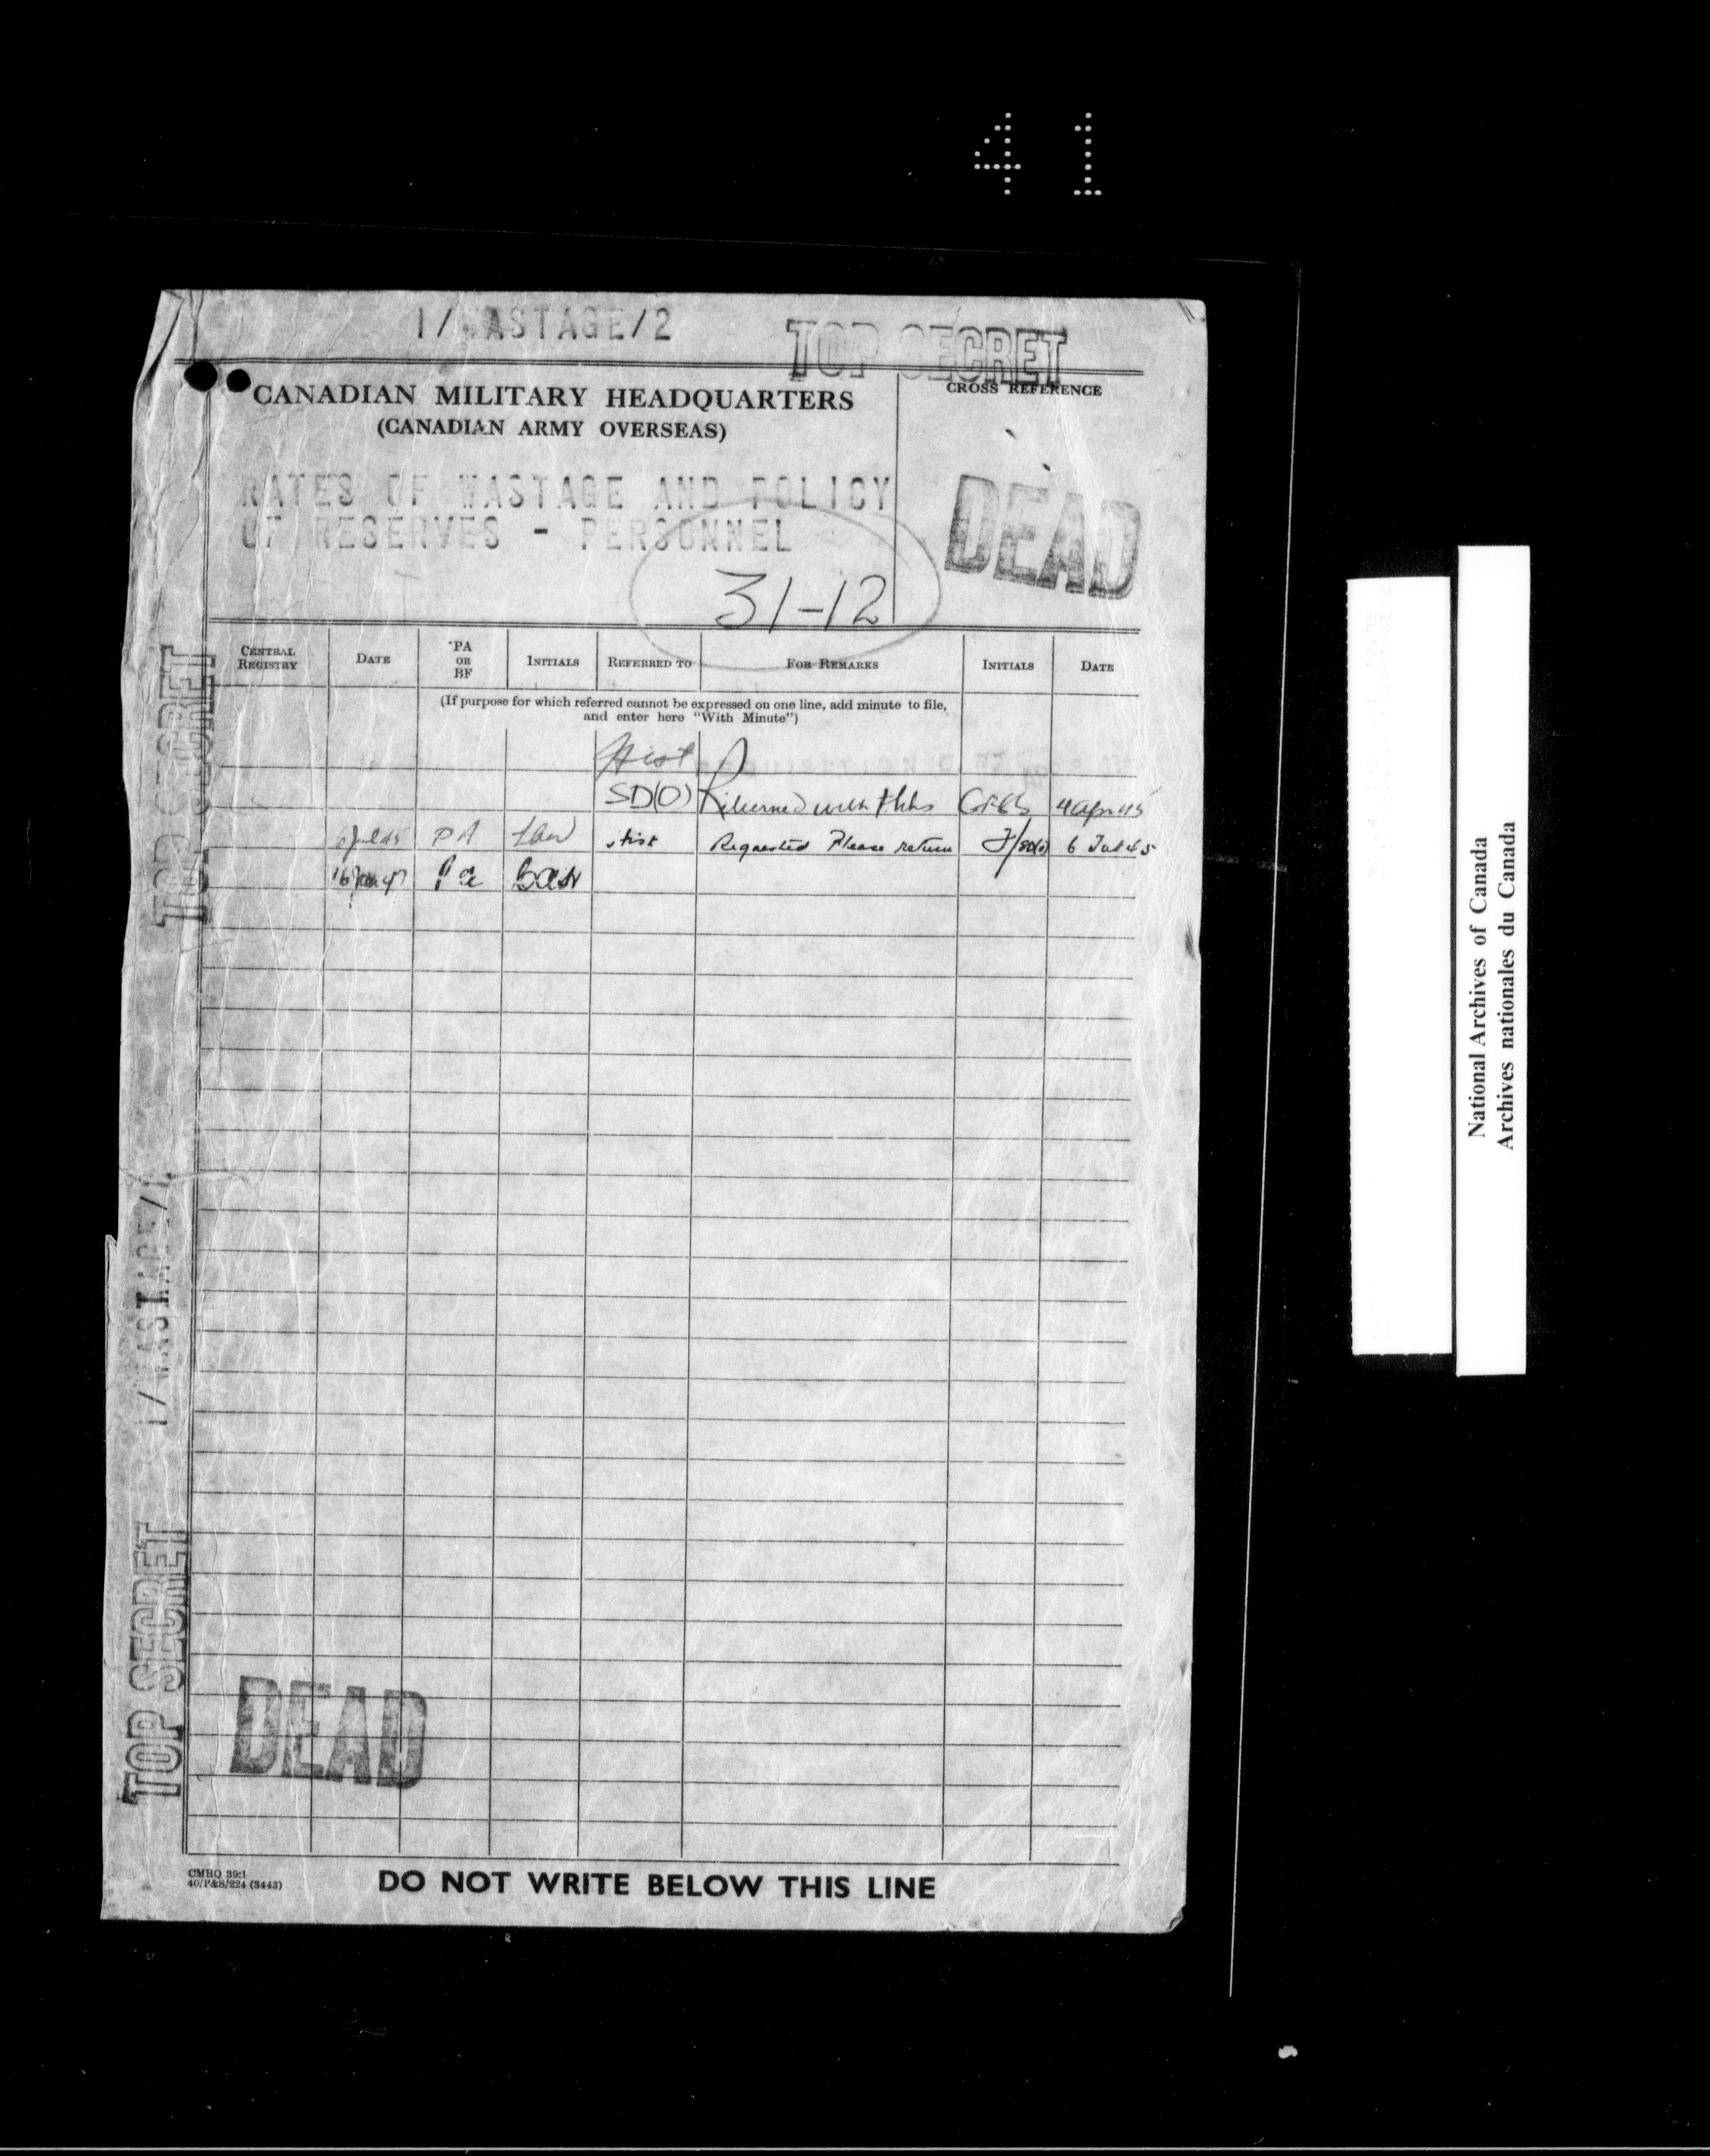 41
1/WASTAGE/2
TOP SECRET
CANADIAN MILITARY HEADQUARTERS
(CANADIAN ARMY OVERSEAS)
CROSS REFERENCE
RATES OF WASTAGE AND POLICY
OF RESERVES - PERSONNEL
DEAD
31-12
CENTRAL REGISTRY DATE PA OR BF INITIALS REFERRED TO FOR REMARKS INITIALS DATE
(If purpose for which referred cannot be expressed on one line, add minute to file,
and enter here "With Minute")
Hist
SD(O) Returned with thks 4 Apr 45
6 Jul 45 PA Hist Requested Please return 6 Jul 45
Pa
TOP SECRET
1/WASTAGE/
TOP SECRET
DEAD
CMHQ 39:1
40/P&S/224 (3443)
DO NOT WRITE BELOW THIS LINE
National Archives of Canada
Archives nationales du Canada